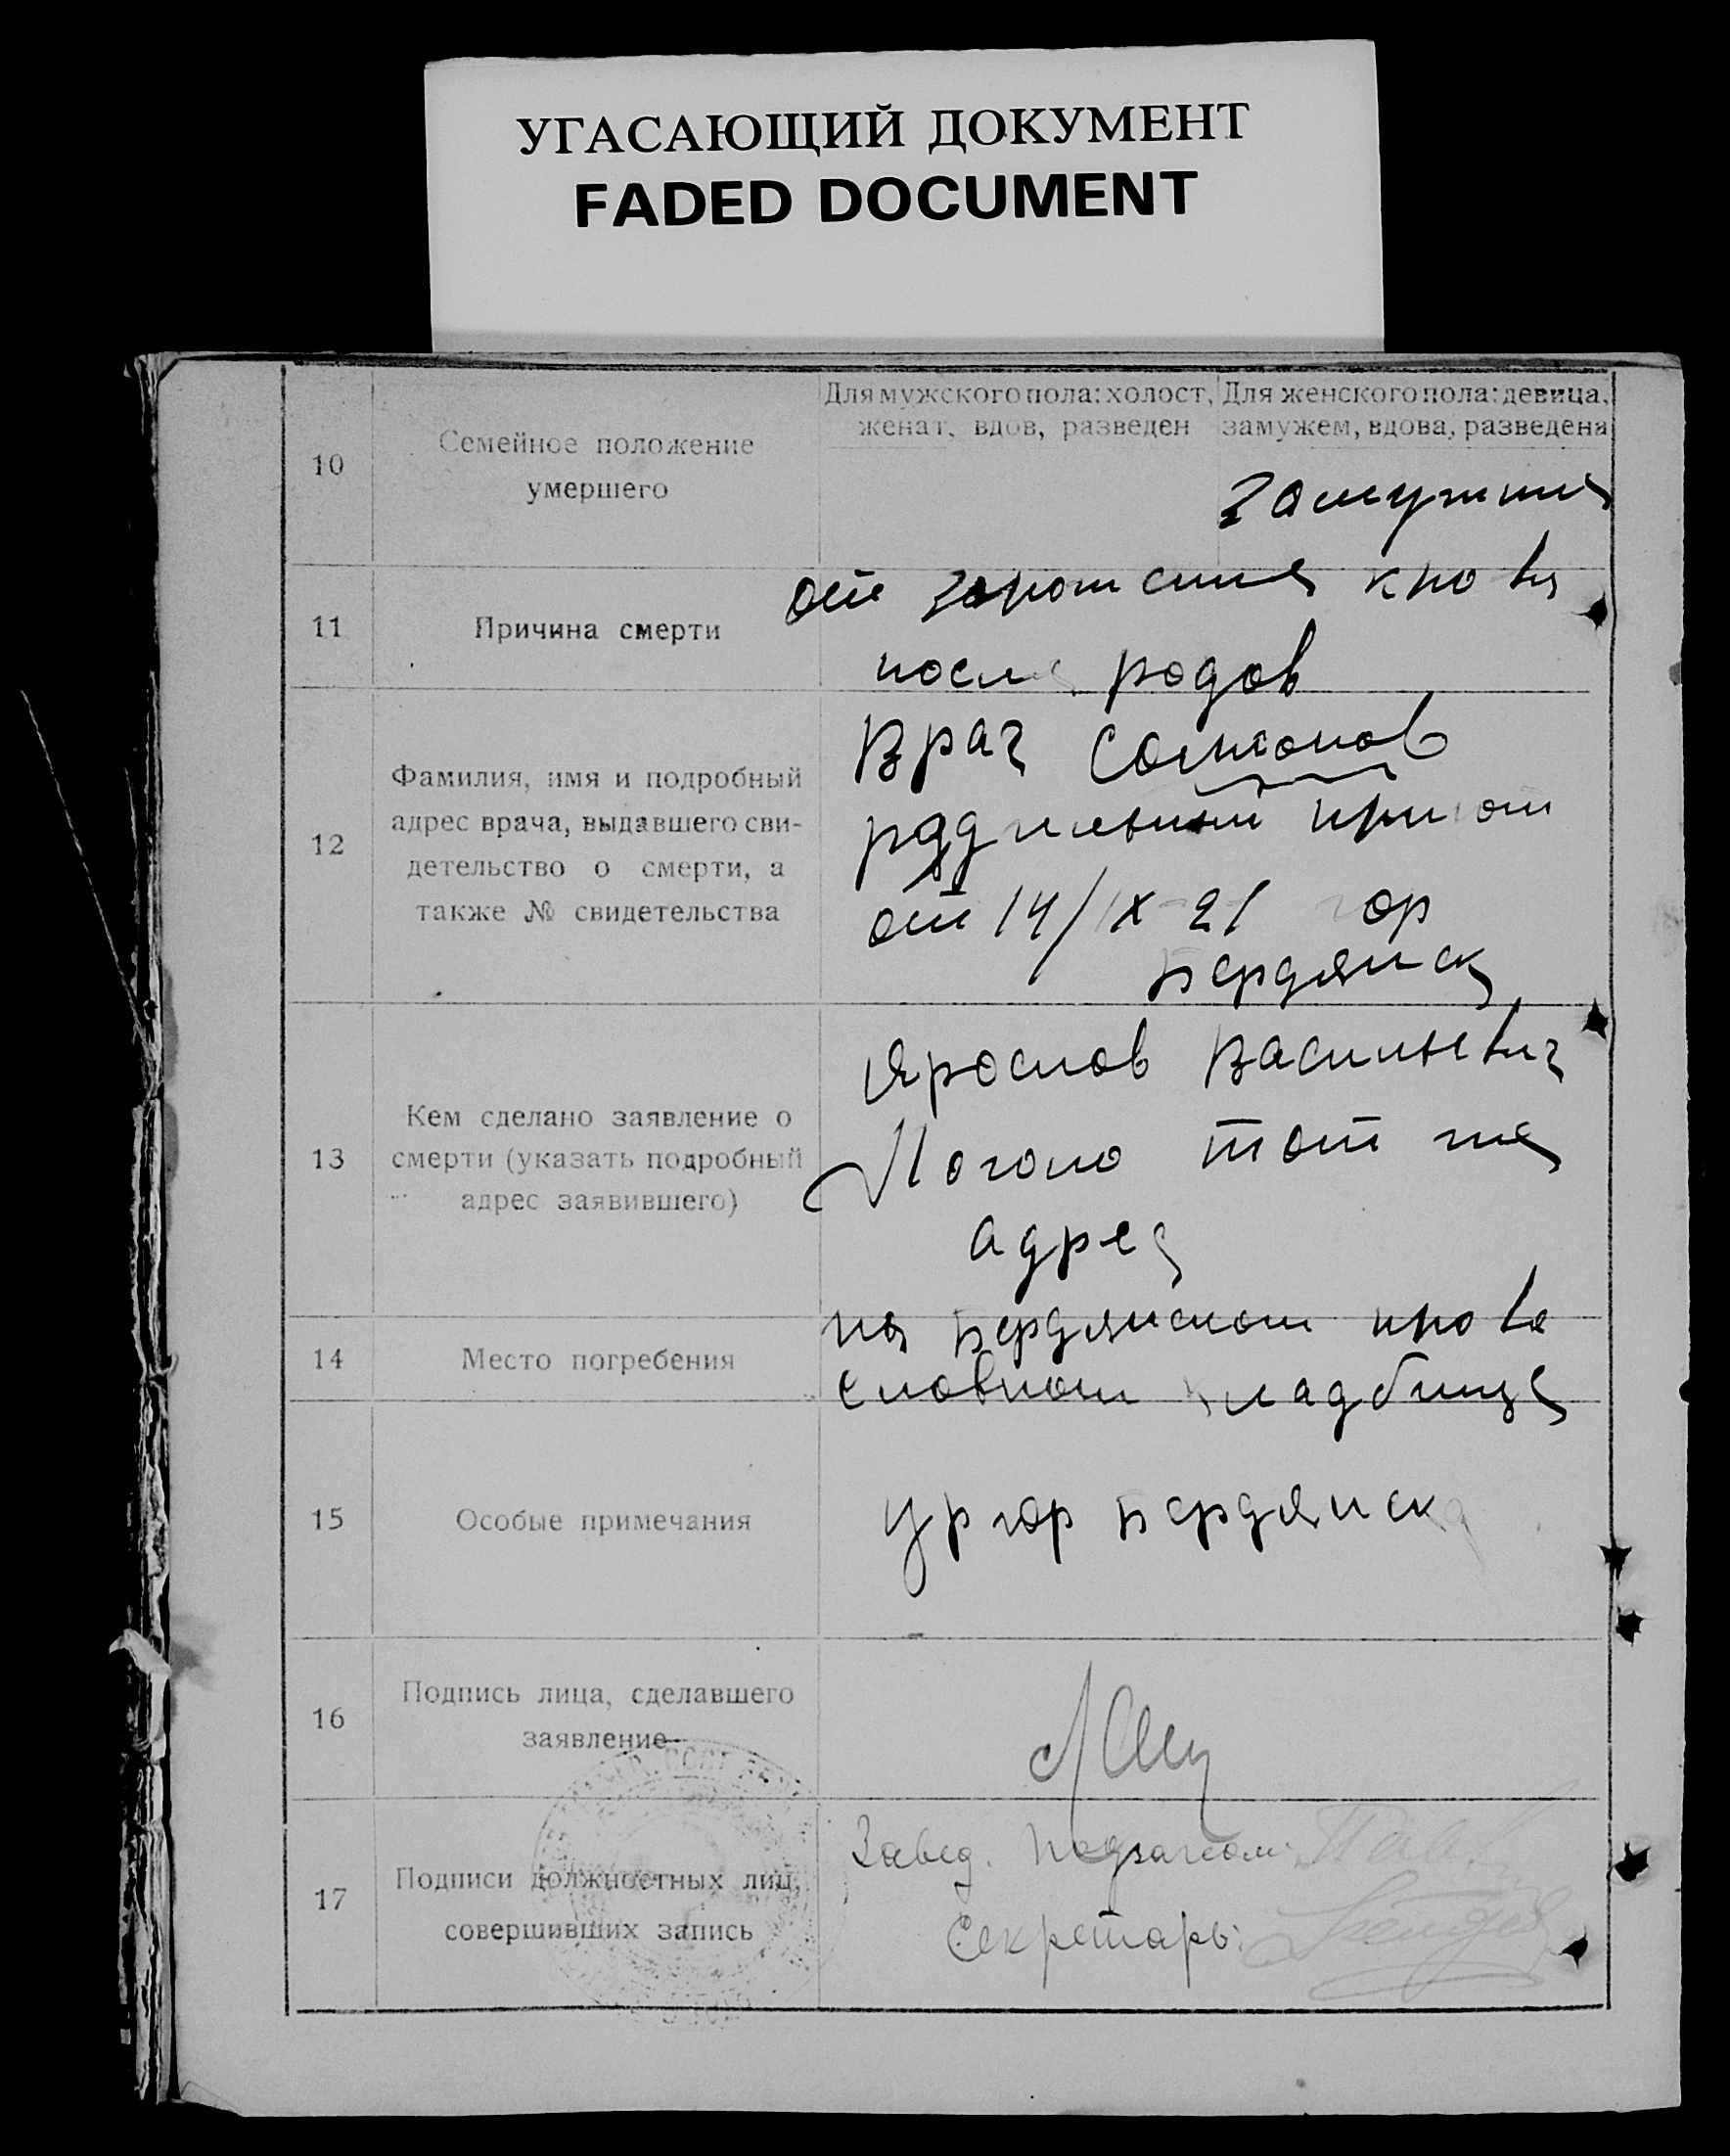 УГАСАЮЩИЙ ДОКУМЕНТ
FADED DOCUMENT
10
Семейное положение
умершего
Для мужского пола: холост,
женат, вдов, разведен
Для женского пола: девица,
замужем, вдова, разведена
замужняя
11
Причина смерти
от заражения крови
после родов
12
Фамилия, имя и подробный
адрес врача, выдавшего сви-
детельство о смерти, а
также № свидетельства
Врач
родильный приют
от 14/IX-21 гор
Бердянск
13
Кем сделано заявление о
смерти (указать подробный
адрес заявившего)
Ярослов Васильевич
тот же
адрес
14
Место погребения
на Бердянском право
славном кладбище
15
Особые примечания
гр гор Бердянска
16
Подпись лица, сделавшего
заявление
17
Подписи должностных лиц,
совершивших запись
Завед. Подзагсом:
Секретарь: